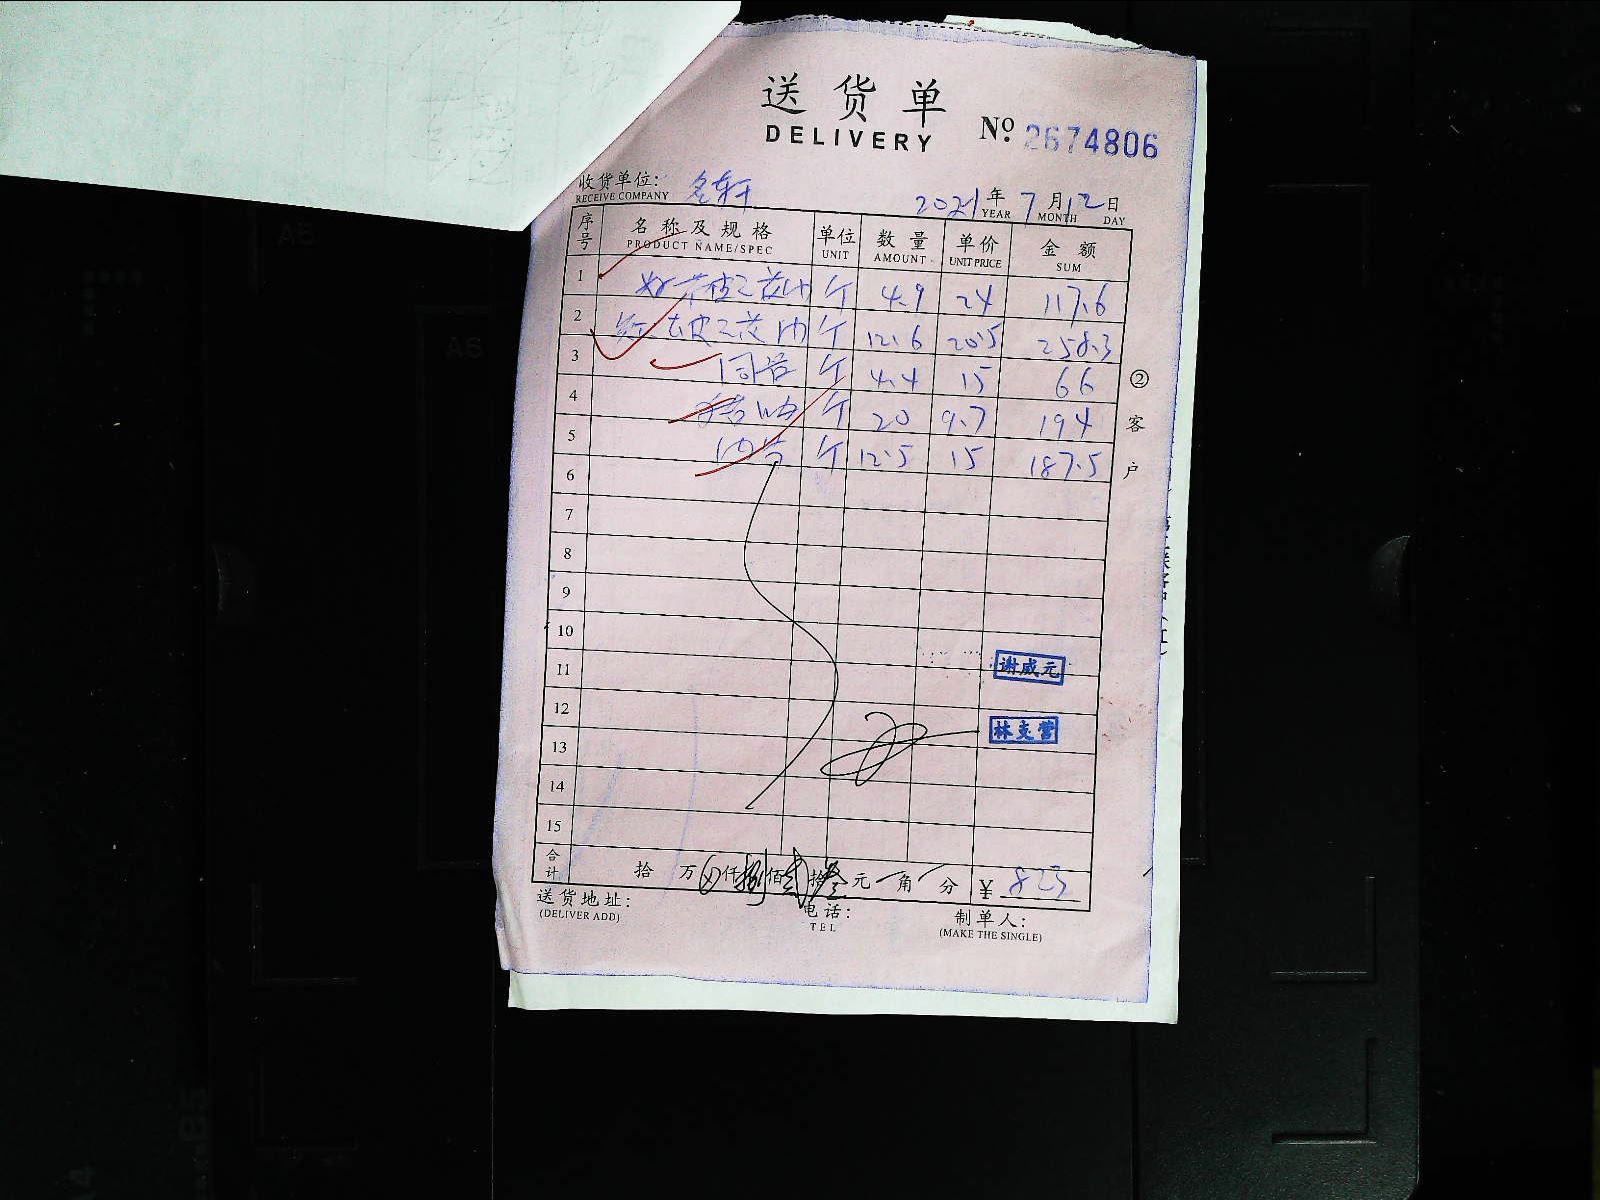 送货单
DELIVERY
№ 2674806
收货单位: 名轩
RECEIVE COMPANY
2021 年 7 月 12 日
YEAR MONTH DAY
序号 名称及规格 单位 数量 单价 金额
PRODUCT NAME/SPEC UNIT AMOUNT UNIT PRICE SUM
1 个 4.9 24 117.6
2 个 12.6 20.5 258.3
3 个 4.4 15 66
4 个 20 9.7 194
5 个 12.5 15 187.5
6
7
8
9
10
11
12
13
14
15
谢威元
林支营
② 客户
合计 拾 万 仟 捌 佰 贰 拾 叁 元 角 分 ¥ 823
送货地址: 电话: 制单人:
(DELIVER ADD) TEL (MAKE THE SINGLE)
A5
A6
B5